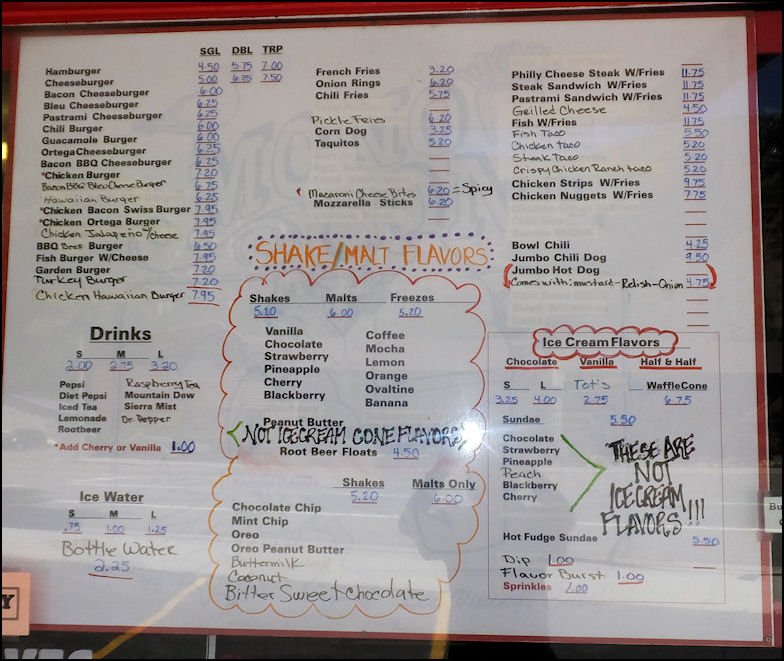 SGL DBL TRP
Hamburger 4.50 5.75 7.00
Cheeseburger 5.00 6.25 7.50
Bacon Cheeseburger 6.00
Bleu Cheeseburger 6.25
Pastrami Cheeseburger 6.25
Chili Burger 6.00
Guacamole Burger 6.00
Ortega Cheeseburger 6.25
Bacon BBQ Cheeseburger 6.25
*Chicken Burger 7.20
Bacon BBQ Bleu Cheese Burger 6.75
Hawaiian Burger 6.25
*Chicken Bacon Swiss Burger 7.95
*Chicken Ortega Burger 7.95
Chicken Jalapeño w/cheese 7.95
BBQ Beef Burger 6.50
Fish Burger W/Cheese 7.95
Garden Burger 7.20
Turkey Burger 7.20
Chicken Hawaiian Burger 7.95
Drinks
S M L
2.00 2.75 3.20
Pepsi Raspberry Tea
Diet Pepsi Mountain Dew
Iced Tea Sierra Mist
Lemonade Dr. Pepper
Rootbeer
*Add Cherry or Vanilla 1.00
Ice Water
S M L
.75 1.00 1.25
Bottle Water
2.25
French Fries 3.20
Onion Rings 6.20
Chili Fries 5.75
Pickle Fries 6.20
Corn Dog 3.25
Taquitos 5.20
Macaroni Cheese Bites 6.20 = Spicy
Mozzarella Sticks 6.20
SHAKE/MALT FLAVORS
Shakes Malts Freezes
5.20 6.00 5.20
Vanilla Coffee
Chocolate Mocha
Strawberry Lemon
Pineapple Orange
Cherry Ovaltine
Blackberry Banana
Peanut Butter
NOT ICECREAM CONE FLAVORS
Root Beer Floats 4.50
Shakes Malts Only
5.20 6.00
Chocolate Chip
Mint Chip
Oreo
Oreo Peanut Butter
Buttermilk
Coconut
Bitter Sweet Chocolate
Philly Cheese Steak W/Fries 11.75
Steak Sandwich W/Fries 11.75
Pastrami Sandwich W/Fries 11.75
Grilled Cheese 4.50
Fish W/Fries 11.75
Fish Taco 5.50
Chicken taco 5.20
Steak Taco 5.20
Crispy Chicken Ranch taco 5.20
Chicken Strips W/Fries 9.75
Chicken Nuggets W/Fries 7.75
Bowl Chili 4.25
Jumbo Chili Dog 9.50
Jumbo Hot Dog
Comes with: mustard-Relish-Onion 4.75
Ice Cream Flavors
Chocolate Vanilla Half & Half
S L Tot's WaffleCone
3.25 4.00 2.75 6.75
Sundae 5.50
Chocolate
Strawberry
Pineapple
Peach
Blackberry
Cherry
THESE ARE
NOT
ICECREAM
FLAVORS!!!
Hot Fudge Sundae 5.50
Dip 1.00
Flavor Burst 1.00
Sprinkles 1.00